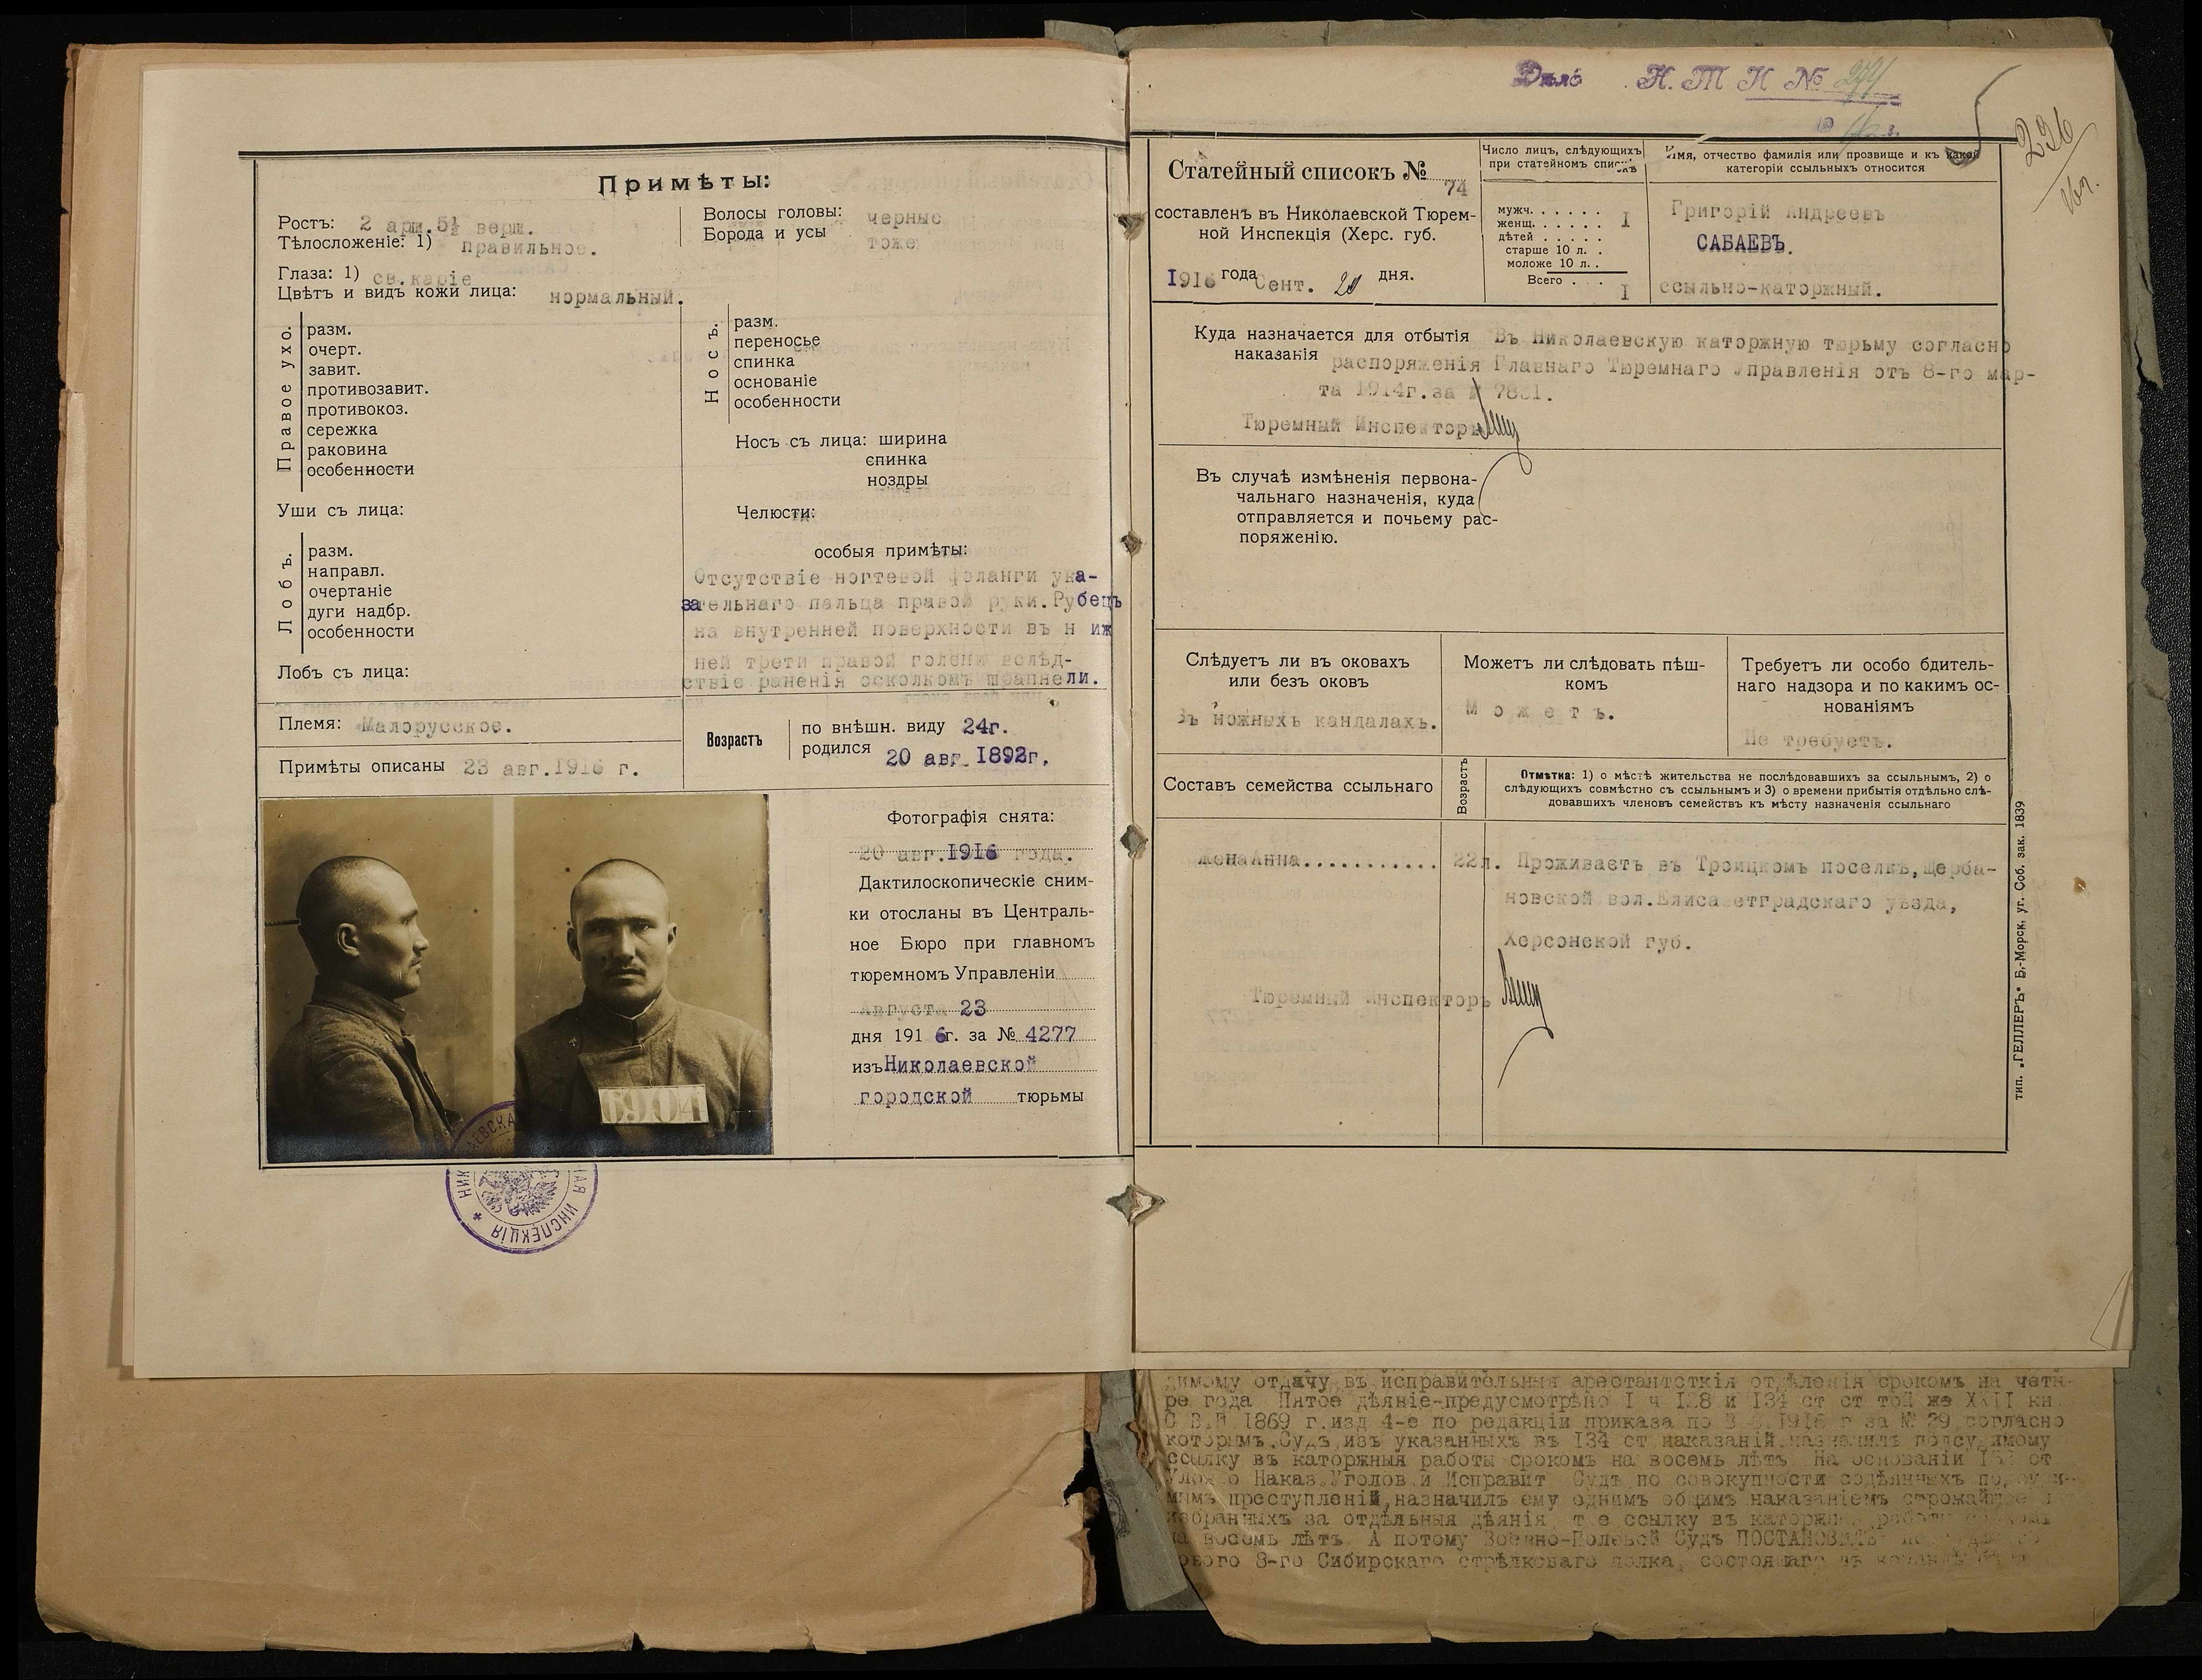 Примѣты:
Ростъ: 2 арш. 5½ верш.
Тѣлосложеніе: 1) правильное.
Глаза: 1) св.каріе
Цвѣтъ и видъ кожи лица: нормальный.
Волосы головы: черные
Борода и усы тоже
Правое ухо.
разм.
очерт.
завит.
противозавит.
противокоз.
сережка
раковина
особенности
Уши съ лица:
Лобъ.
разм.
направл.
очертаніе
дуги надбр.
особенности
Лобъ съ лица:
Носъ.
разм.
переносье
спинка
основаніе
особенности
Носъ съ лица: ширина
спинка
ноздры
Челюсти:
особыя примѣты:
Отсутствіе ногтевой фаланги ука-
зательнаго пальца правой руки. Рубецъ
на внутренней поверхности въ н иж
ней трети правой голени вслѣд-
ствіе раненія осколкомъ шрапнели.
Племя: Малорусское.
Примѣты описаны 23 авг.1916 г.
Возрастъ
по внѣшн. виду 24г.
родился 20 авг. 1892г.
Фотографія снята:
20 авг.1916 года.
Дактилоскопическіе сним-
ки отосланы въ Централь-
ное Бюро при главномъ
тюремномъ Управленіи
Августа 23
дня 1916г. за № 4277
изъ Николаевской
городской тюрьмы
6904
ИНСПЕКЦІЯ
Дѣло Н. Т И №
236
Статейный списокъ № 74
составленъ въ Николаевской Тюрем-
ной Инспекція (Херс. губ.
1916 года Сент. дня.
Число лицъ, слѣдующихъ
при статейномъ спискѣ
мужч. . . . . . I
женщ. . . . . .
дѣтей . . . . .
старше 10 л. .
моложе 10 л. .
Всего . . . I
Имя, отчество фамилія или прозвище и къ какой
категоріи ссыльныхъ относится
Григорій Андреевъ
САБАЕВЪ.
ссыльно-каторжный.
Куда назначается для отбытія
наказанія
Въ Николаевскую каторжную тюрьму согласно
распоряженія Главнаго Тюремнаго Управленія отъ 8-го мар-
та 1914г. за №
Тюремный Инспекторъ
Въ случаѣ измѣненія первона-
чальнаго назначенія, куда
отправляется и почьему рас-
поряженію.
Слѣдуетъ ли въ оковахъ
или безъ оковъ
Въ ножныхъ кандалахъ.
Можетъ ли слѣдовать пѣш-
комъ
М о ж е т ъ.
Требуетъ ли особо бдитель-
наго надзора и по какимъ ос-
нованіямъ
Не требуетъ.
Составъ семейства ссыльнаго
Возрастъ
Отмѣтка: 1) о мѣстѣ жительства не послѣдовавшихъ за ссыльнымъ, 2) о
слѣдующихъ совмѣстно съ ссыльнымъ и 3) о времени прибытія отдѣльно слѣ-
довавшихъ членовъ семействъ къ мѣсту назначенія ссыльнаго
жена Анна............ 22л. Проживаетъ въ Троицкомъ поселкѣ, Щерба-
новской вол. Елисаветградскаго уѣзда,
Херсонской губ.
Тюремный Инспекторъ
тип. „ГЕЛЛЕРЪ“ Б.-Морск. уг. Соб. зак. 1839
димому отдачу въ исправительныя арестантсткія отдѣленія срокомъ на четы-
ре года Пятое дѣяніе-предусмотрѣно I ч 128 и 134 ст ст той же XXII кн
С В.П 1869 г. изд 4-е по редакціи приказа по В В. 1916 г за № 29 согласно
которымъ Судъ, изъ указанныхъ въ 134 ст наказаній, назначилъ подсудимому
ссылку въ каторжныя работы срокомъ на восемь лѣтъ На основаніи ст
Улож о Наказ Уголов и Исправит Судъ по совокупности содѣянныхъ подсуди-
мымъ преступленій, назначилъ ему однимъ общимъ наказаніемъ строжайшее
избранныхъ за отдѣльныя дѣянія, т е ссылку въ каторжныя работы срокомъ
на восемь лѣтъ А потому Военно-Полевой Судъ ПОСТАНОВИЛЪ
8-го Сибирскаго стрѣлковаго полка, состоящаго въ